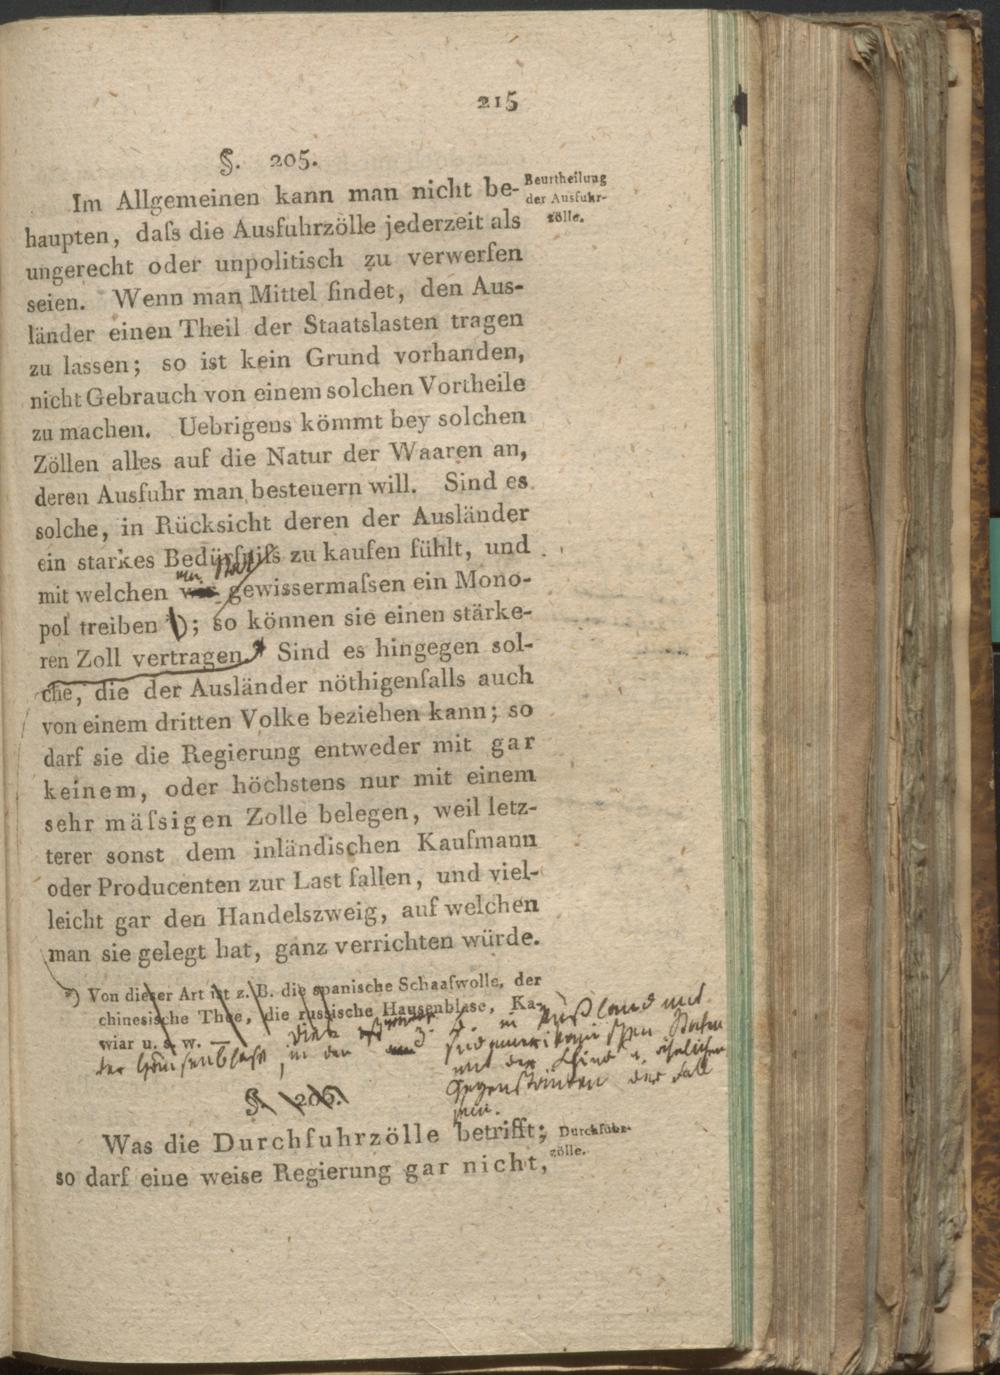 215
§. 205.
Beurtheilung
der Ausfuhr-
zölle.
Im Allgemeinen kann man nicht be-
haupten, daſs die Ausfuhrzölle jederzeit als
ungerecht oder unpolitisch zu verwerfen
seien. Wenn man Mittel findet, den Aus-
länder einen Theil der Staatslasten tragen
zu lassen; so ist kein Grund vorhanden,
nicht Gebrauch von einem solchen Vortheile
zu machen. Uebrigens kömmt bey solchen
Zöllen alles auf die Natur der Waaren an,
deren Ausfuhr man besteuern will. Sind es
solche, in Rücksicht deren der Ausländer
ein starkes Bedürfniſs zu kaufen fühlt, und
mit welchen gewissermaſsen ein Mono-
pol treiben *); so können sie einen stärke-
ren Zoll vertragen. Sind es hingegen sol-
che, die der Ausländer nöthigenfalls auch
von einem dritten Volke beziehen kann; so
darf sie die Regierung entweder mit gar
keinem, oder höchstens nur mit einem
sehr mäſsigen Zolle belegen, weil letz-
terer sonst dem inländischen Kaufmann
oder Producenten zur Last fallen, und viel-
leicht gar den Handelszweig, auf welchen
man sie gelegt hat, ganz verrichten würde.
*) Von dieser Art ist z. B. die spanische Schaafwolle, der
chinesische Thee, die russische Hausenblase, Ka-
wiar u. s. w. —
der Hausenblase in
Rußland und
südamerikanischen Staaten
mit der China u. ähnlichen
Gegenständen der Fall
sein.
§. 206.
Was die Durchfuhrzölle betrifft;
so darf eine weise Regierung gar nicht,
Durchfuhr-
zölle.